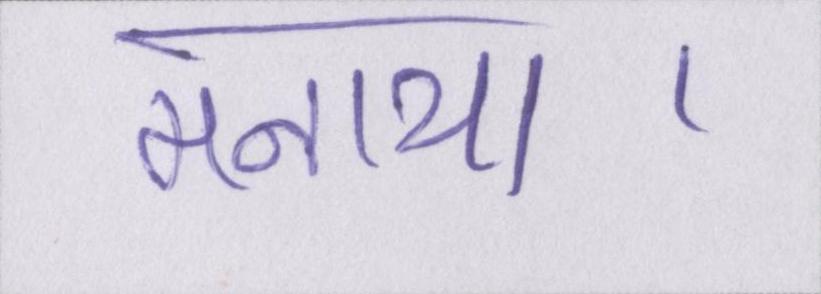 मनाया।